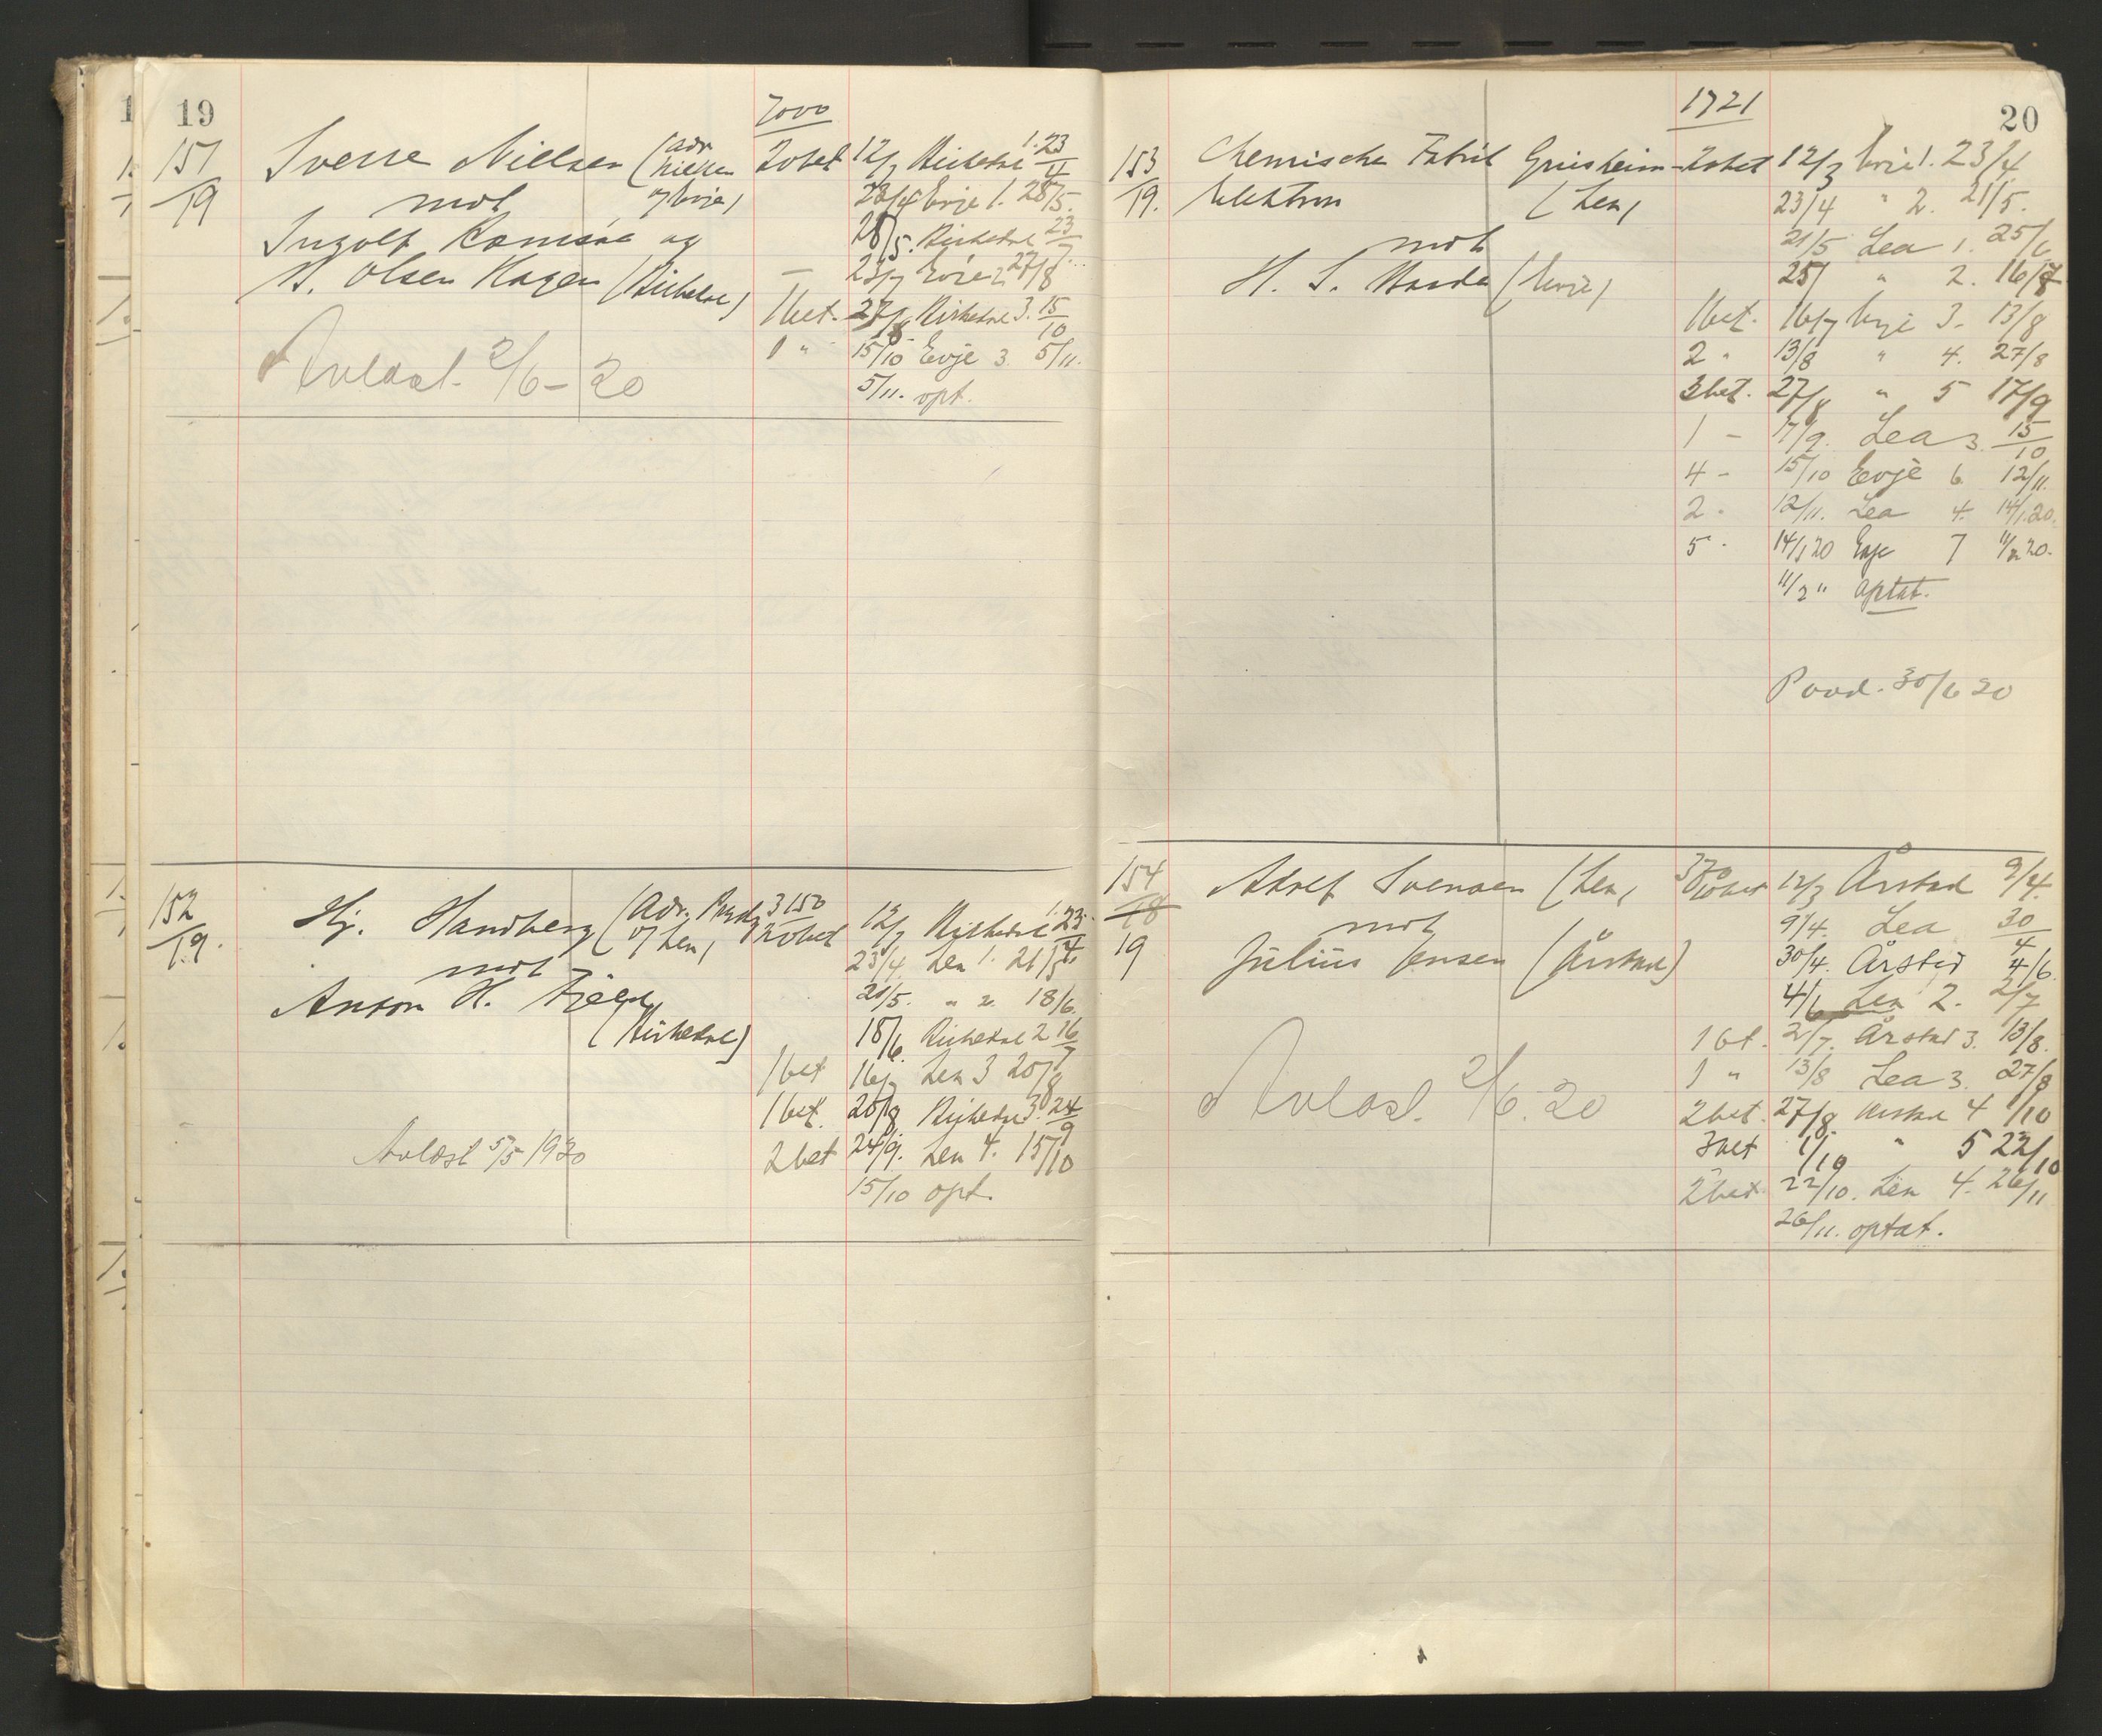 19
7000
151
19
Sverre Nielsen (adv Nielsen og Evje)
mot
Ingolf og
N. Olsen Hagen (Kirkedal)
Avlæst 2/6-20
12/3 Kirkedal 1. 23/4
23/4 Evje 1. 28/5.
28/5. Kirkedal 23/7
— 23/7 Evje 2. 27/8
1 bet. 27/8 Kirkedal 3. 15/10
1 " 15/10 Evje 3. 5/11.
5/11. opt.
152
19.
Hj. Handberg (Adv. og Lea)
mot
Anton H.
(Kirkedal)
3150
12/3 Kirkedal 1. 23/4
23/4. Lea 1. 21/5
21/5. " 2. 18/6.
18/6. Kirkedal 2 16/7
1 bet 16/7 Lea 3 20/8
1 bet. 20/8 Kirkedal 3. 24/9
2 bet 24/9. Lea 4. 15/10
15/10 opt.
Avlæst 5/5 1920
20
1721
153
19.
Chemische Fabrik Griesheim-
Elektron (Lea)
mot
H. S. (Evje)
12/3 Evje 1. 23/4
23/4 " 2. 21/5.
21/5 Lea 1. 25/6
25/ " 2. 16/7
1 bet. 16/7 Evje 3. 13/8
2 " 13/8 " 4. 27/8
3 bet. 27/8 " 5 17/9
1 - 17/9. Lea 3. 15/10
4 - 15/10 Evje 6. 12/11.
2 - 12/11. Lea 4. 14/1.20.
5 - 14/1 20 Evje 7 11/2 20.
11/2 " optat.
30/6 20
154
18
19
Adolf Svensen (Lea)
mot
Julius Jensen (Årstad)
12/3 Årstad 9/4.
9/4. Lea 30/4
30/4. Årstad 4/6
4/6 Lea 2. 2/7
1 bt. 2/7. Årstad 3. 13/8.
1 " 13/8 Lea 3. 27/8
2 bet. 27/8. Årstad 4 1/10
3 bet 1/10 " 5 22/10
2 bet 22/10. Lea 4. 26/11
26/11. optat.
Avlæst. 2/6. 20